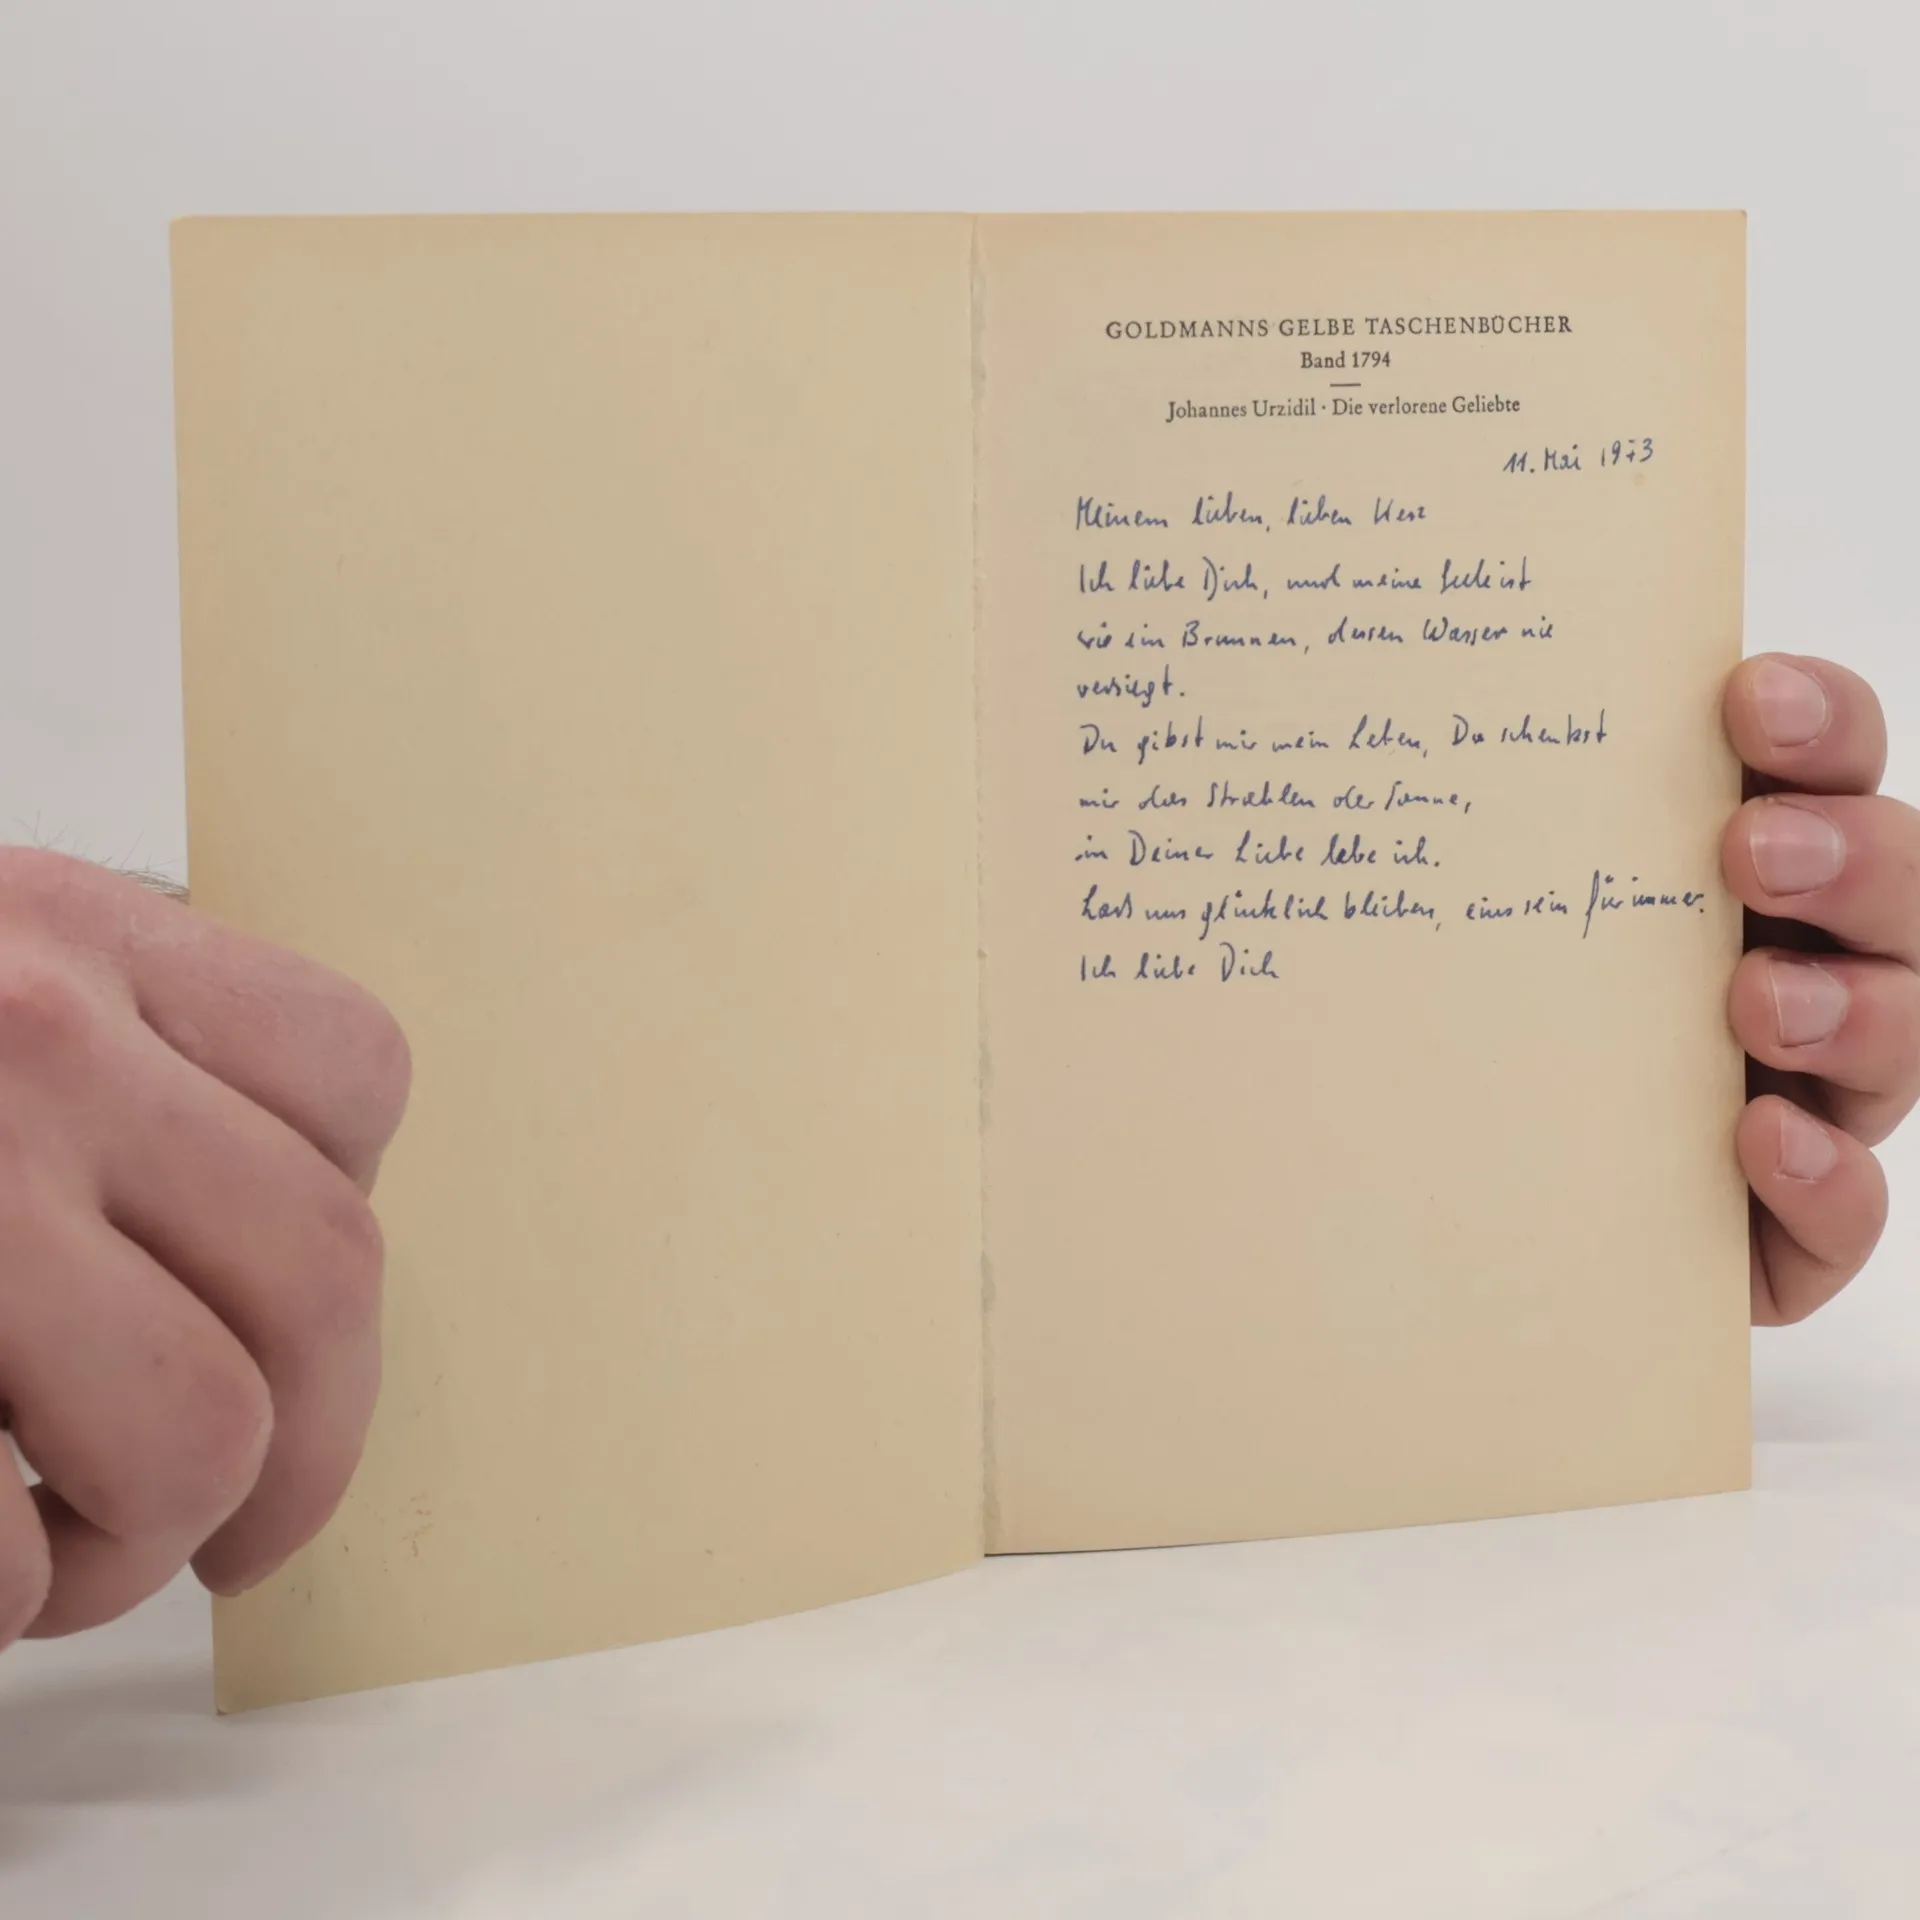 GOLDMANNS GELBE TASCHENBÜCHER
Band 1794
Johannes Urzidil · Die verlorene Geliebte
11. Mai 1973
Meinem lieben, lieben Herz
Ich liebe Dich, und meine Seele ist
wie ein Brunnen, dessen Wasser nie
versiegt.
Du gibst mir mein Leben, Du schenkst
mir das Strahlen der Sonne,
in Deiner Liebe lebe ich.
Lass uns glücklich bleiben, eins sein für immer.
Ich liebe Dich